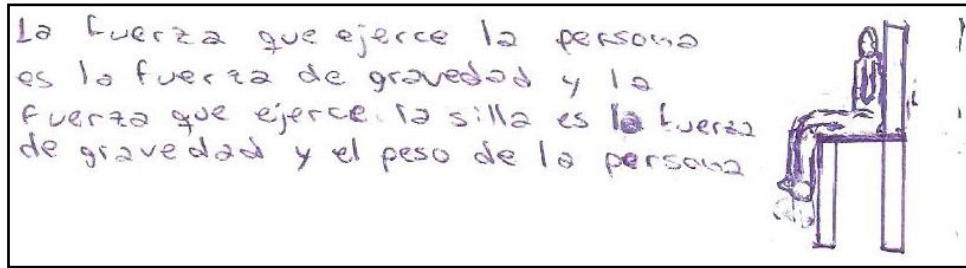 La fuerza que ejerce la persona
es la fuerza de gravedad y la
fuerza que ejerce la silla es la fuerza
de gravedad y el peso de la persona